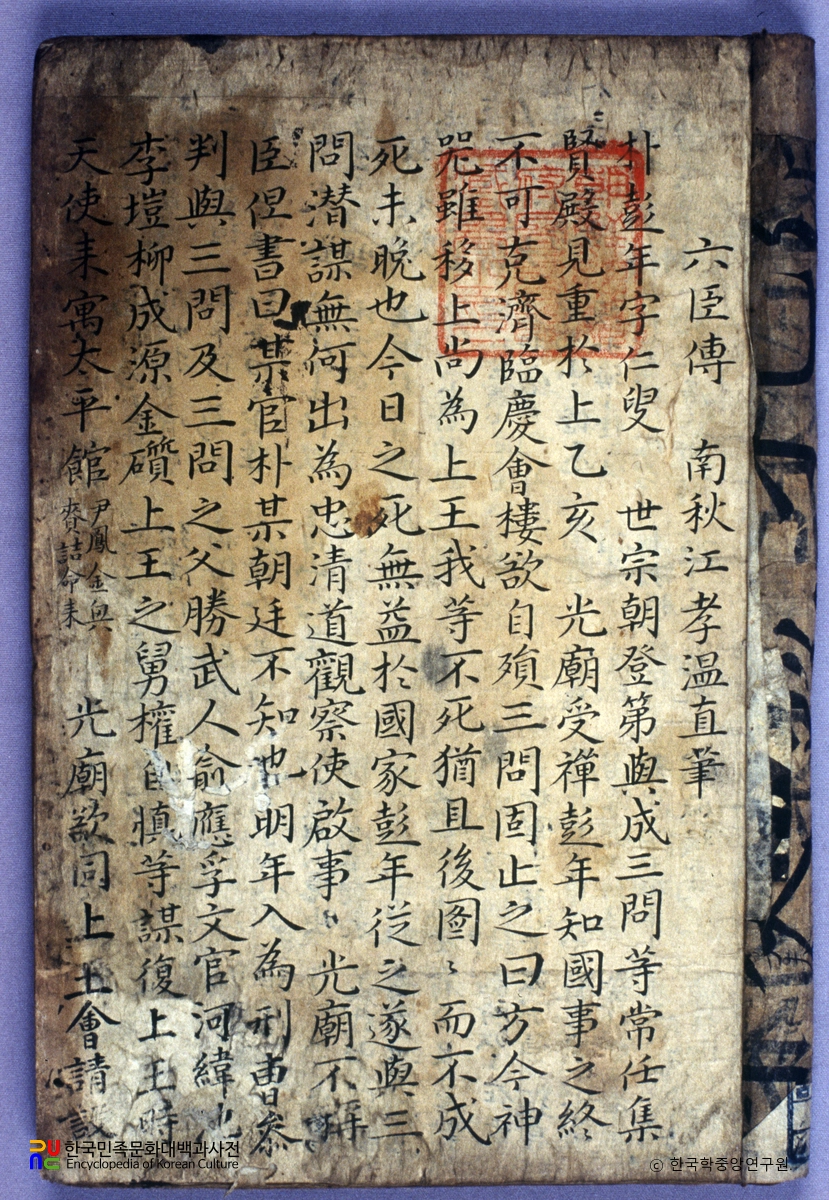 六臣傳 南秋江孝温直筆
朴彭年字仁叟 世宗朝登第與成三問等常任集
賢殿見重於上乙亥 光廟受禪彭年知國事之終
不可克濟臨慶會樓欲自殞三問固止之曰方今神
噐雖移上尚為上王我等不死猶且後圖〻而不成
死未晚也今日之死無益於國家彭年從之遂與三
問潜謀無何出為忠清道觀察使啟事 光廟不稱
臣但書曰某官朴某朝廷不知也明年入為刑曹叅
判與三問及三問之父勝武人俞應孚文官河緯地
李塏柳成源金礩上王之舅權自愼等謀復上王時
天使来寓太平館 尹鳳金興賫詰命来 光廟欲同上王會請設
한국민족문화대백과사전
Encyclopedia of Korean Culture
© 한국학중앙연구원